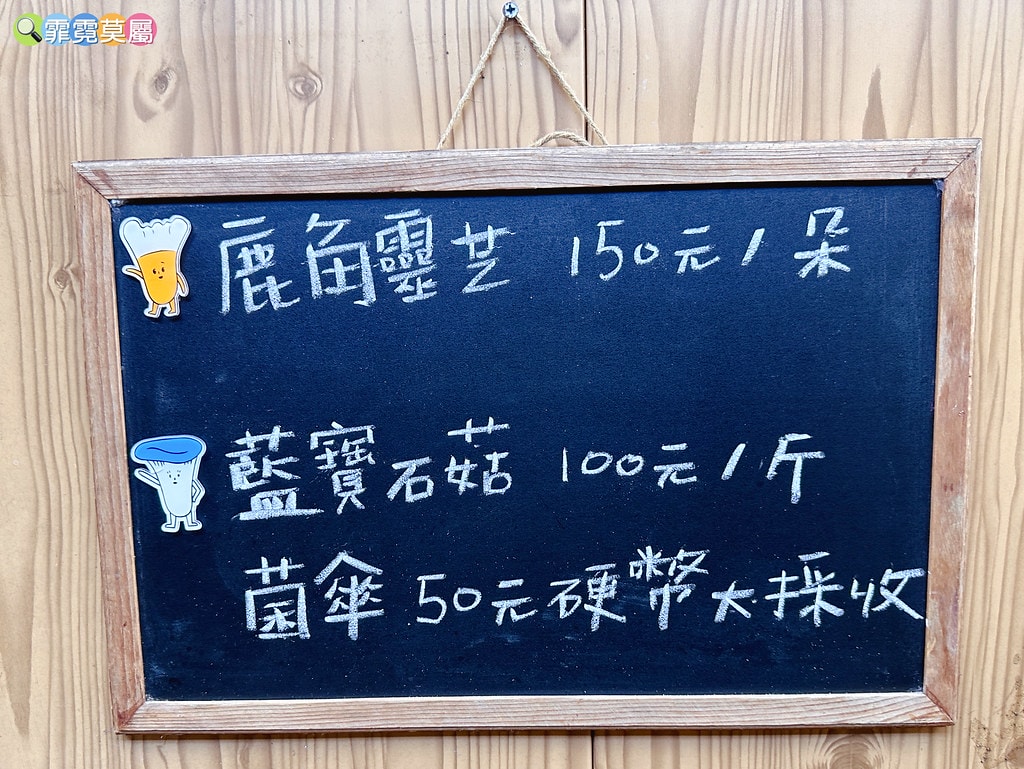 霏霓莫屬
鹿角靈芝 150元/朵
藍寶石菇 100元/斤
菌傘50元硬幣大採收